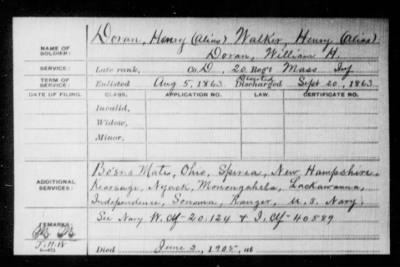 NAME OF SOLDIER: Doran, Henry (Alias) Walker, Henry (Alias)
Doran, William H.
SERVICE: Late rank, Co. D, 20 Reg't Mass Inf
TERM OF SERVICE: Enlisted Aug 5, 1863 Deserted Discharged Sept 20, 1863
DATE OF FILING. CLASS. APPLICATION NO. LAW. CERTIFICATE NO.
Invalid,
Widow,
Minor,
ADDITIONAL SERVICES: Bo'sns Mate, Ohio, Iberia, New Hampshire,
Kearsage, Nyack, Monongahela, Lackawanna,
Independence, Sonoma, Ranger, U.S. Navy
See Navy W. Ctf 20,124 & I. Ctf 40589
REMARKS:
Died June 2, 1905, at